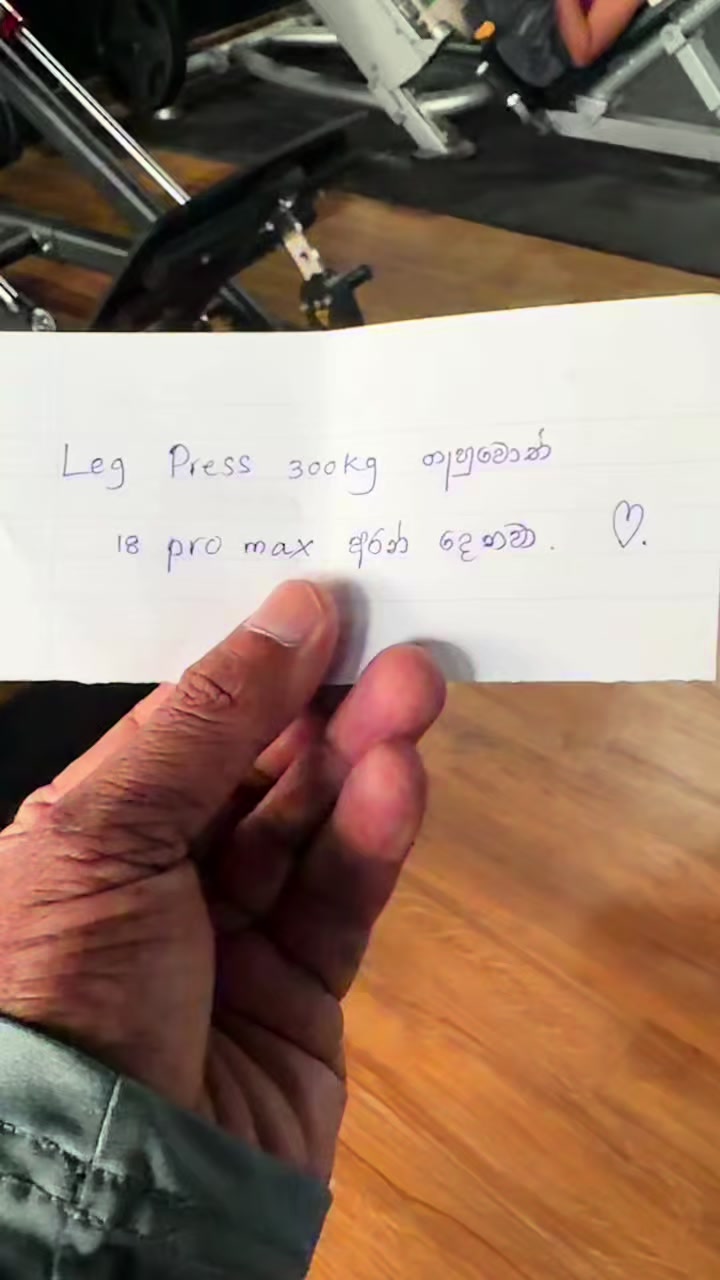 Leg Press 300kg ගැහුවොත්
18 pro max අරන් දෙනවා. ♡.